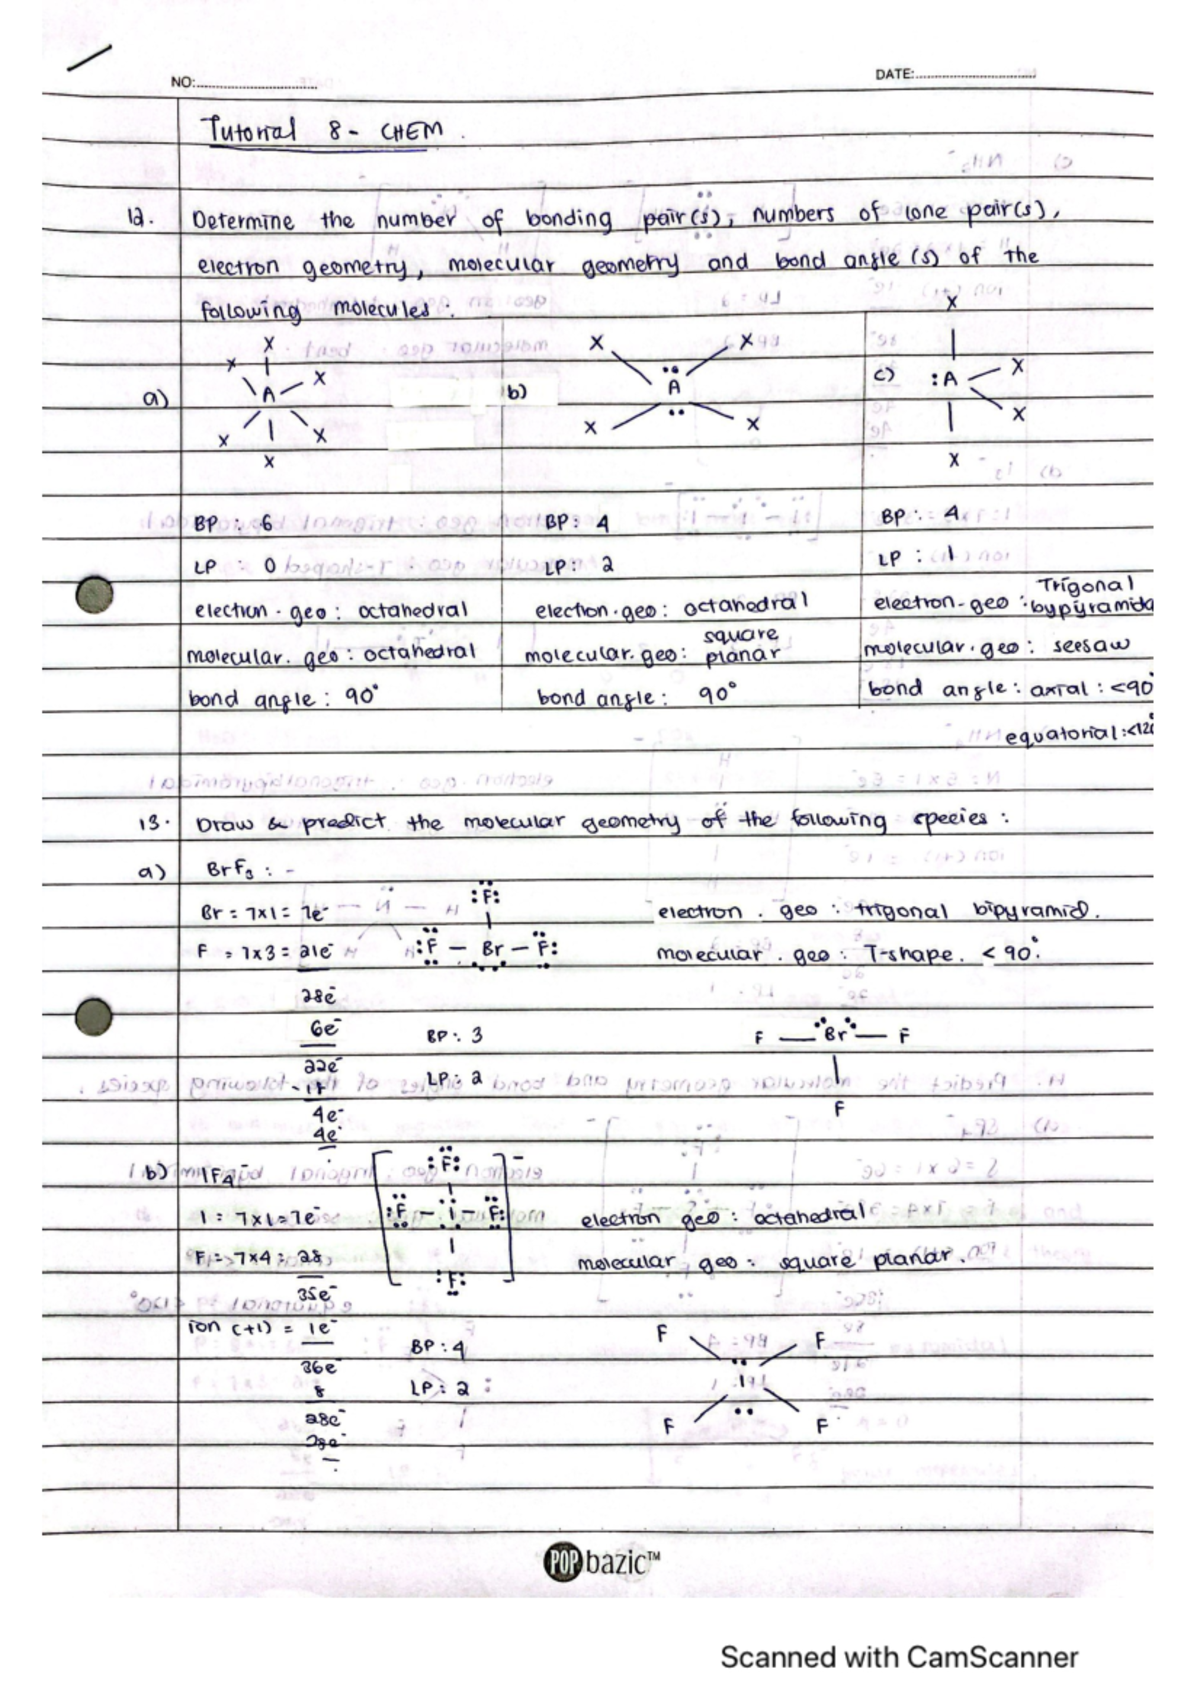 NO:
DATE:
Tutorial 8 - CHEM.
12. Determine the number of bonding pair(s), numbers of lone pair(s),
electron geometry, molecular geometry and bond angle(s) of the
following molecules:
a)
X
X
X
A
X
X
X
b)
X
X
A
X
X
c)
X
:A
X
X
X
BP : 6
LP : 0
electron.geo: octahedral
molecular.geo: octahedral
bond angle: 90°
BP: 4
LP: 2
electron.geo: octahedral
molecular.geo: square planar
bond angle: 90°
BP: 4
LP: 1
electron-geo: Trigonal bypyramida
molecular.geo: seesaw
bond angle: axial: <90°
equatorial: <120°
13. Draw & predict the molecular geometry of the following species:
a) BrF3 : -
Br = 7x1 = 7e-
F = 7x3 = 21e-
28e-
6e-
22e-
4e-
4e-
:F:
:F – Br – F:
BP: 3
LP: 2
electron.geo: trigonal bipyramid.
molecular.geo: T-shape. < 90°.
F — Br — F
F
b) IF4-
I = 7x1 = 7e-
F = 7x4 = 28
35e-
ion (+1) = 1e-
36e-
8
28e-
28e-
:F:
:F – I – F:
:F:
BP: 4
LP: 2
electron geo: octahedral
molecular geo: square planar.
F
F
I
F
F
POPbazic™
Scanned with CamScanner